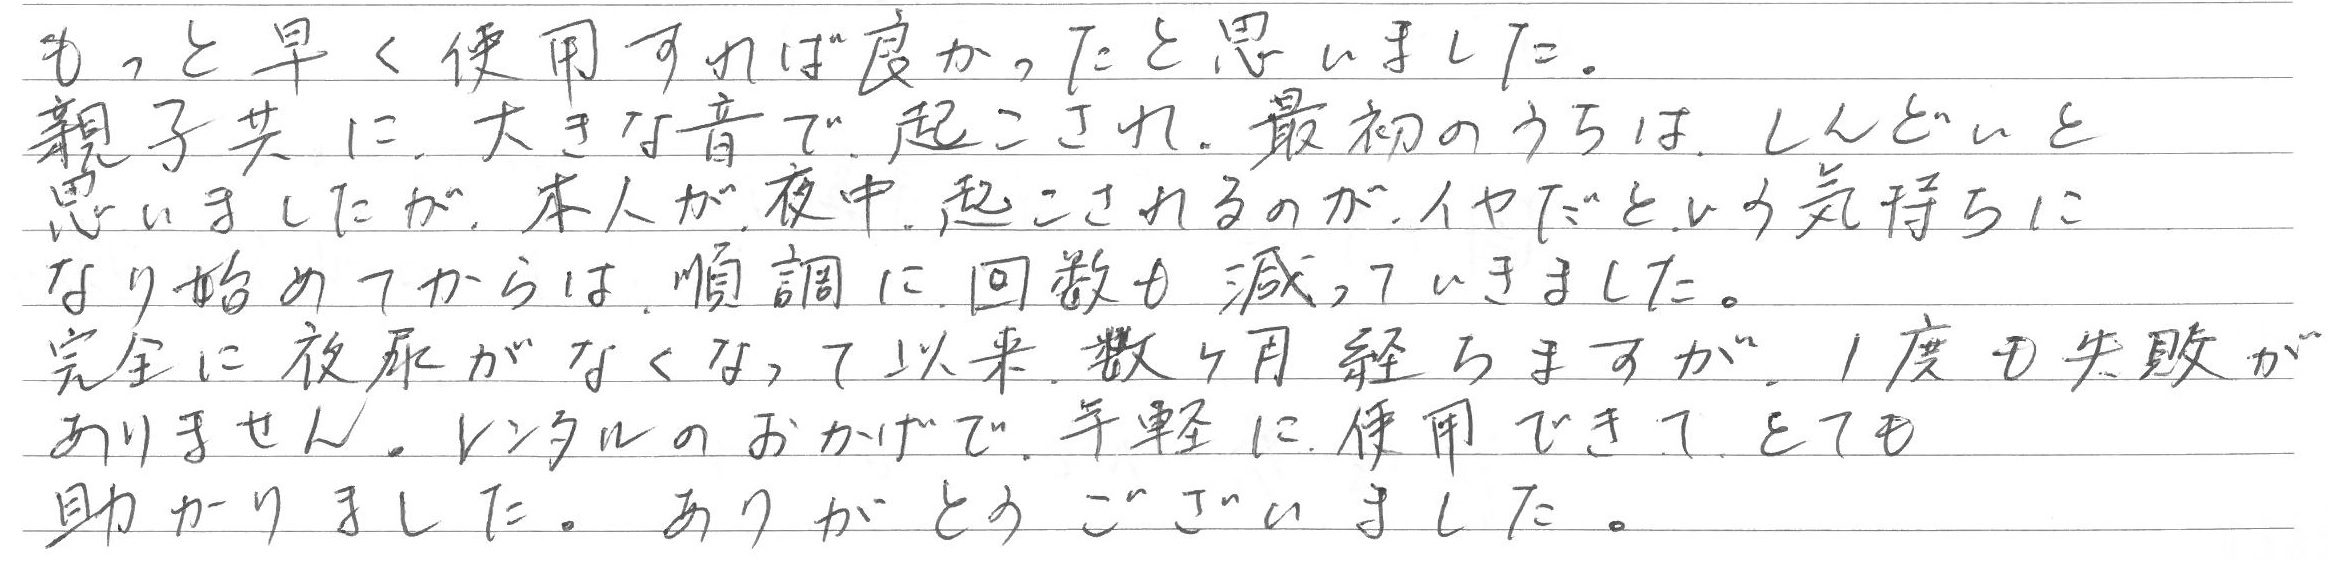 もっと早く使用すれば良かったと思いました。
親子共に、大きな音で、起こされ、最初のうちは、しんどいと
思いましたが、本人が、夜中、起こされるのが、イヤだという気持ちに
なり始めてからは、順調に、回数も減っていきました。
完全に夜尿がなくなって以来、数ヶ月経ちますが、1度も失敗が
ありません。レンタルのおかげで、手軽に、使用できて、とても
助かりました。ありがとうございました。